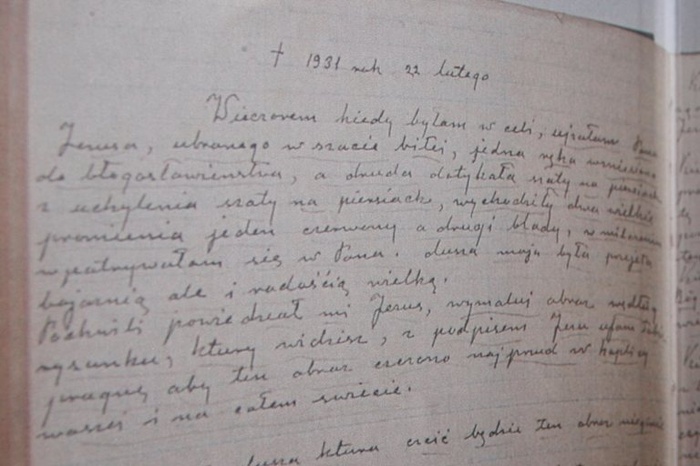 † 1931 rok 22 lutego
Wieczorem kiedy byłam w celi, ujrzałam Pana
Jezusa, ubranego w szacie białej, jedna ręka wzniesiona
do błogosławieństwa, a druda dotykała szaty na piersiach
z uchylenia szaty na piersiach, wychodziły dwa wielkie
promienia jeden czerwony a drugi blady, w milczeniu
wpatrywałam się w Pana. dusza moja była przejęta
bojaźnią ale i radością wielką.
Po chwili powiedział mi Jezus, wymaluj obraz według
rysunku, ktury widzisz, z podpisem Jezu ufam Tobie
pragnę aby ten obraz czczono najprzud w kaplicy
waszej i na całem świecie.
dusza ktura czcić będzie ten obraz